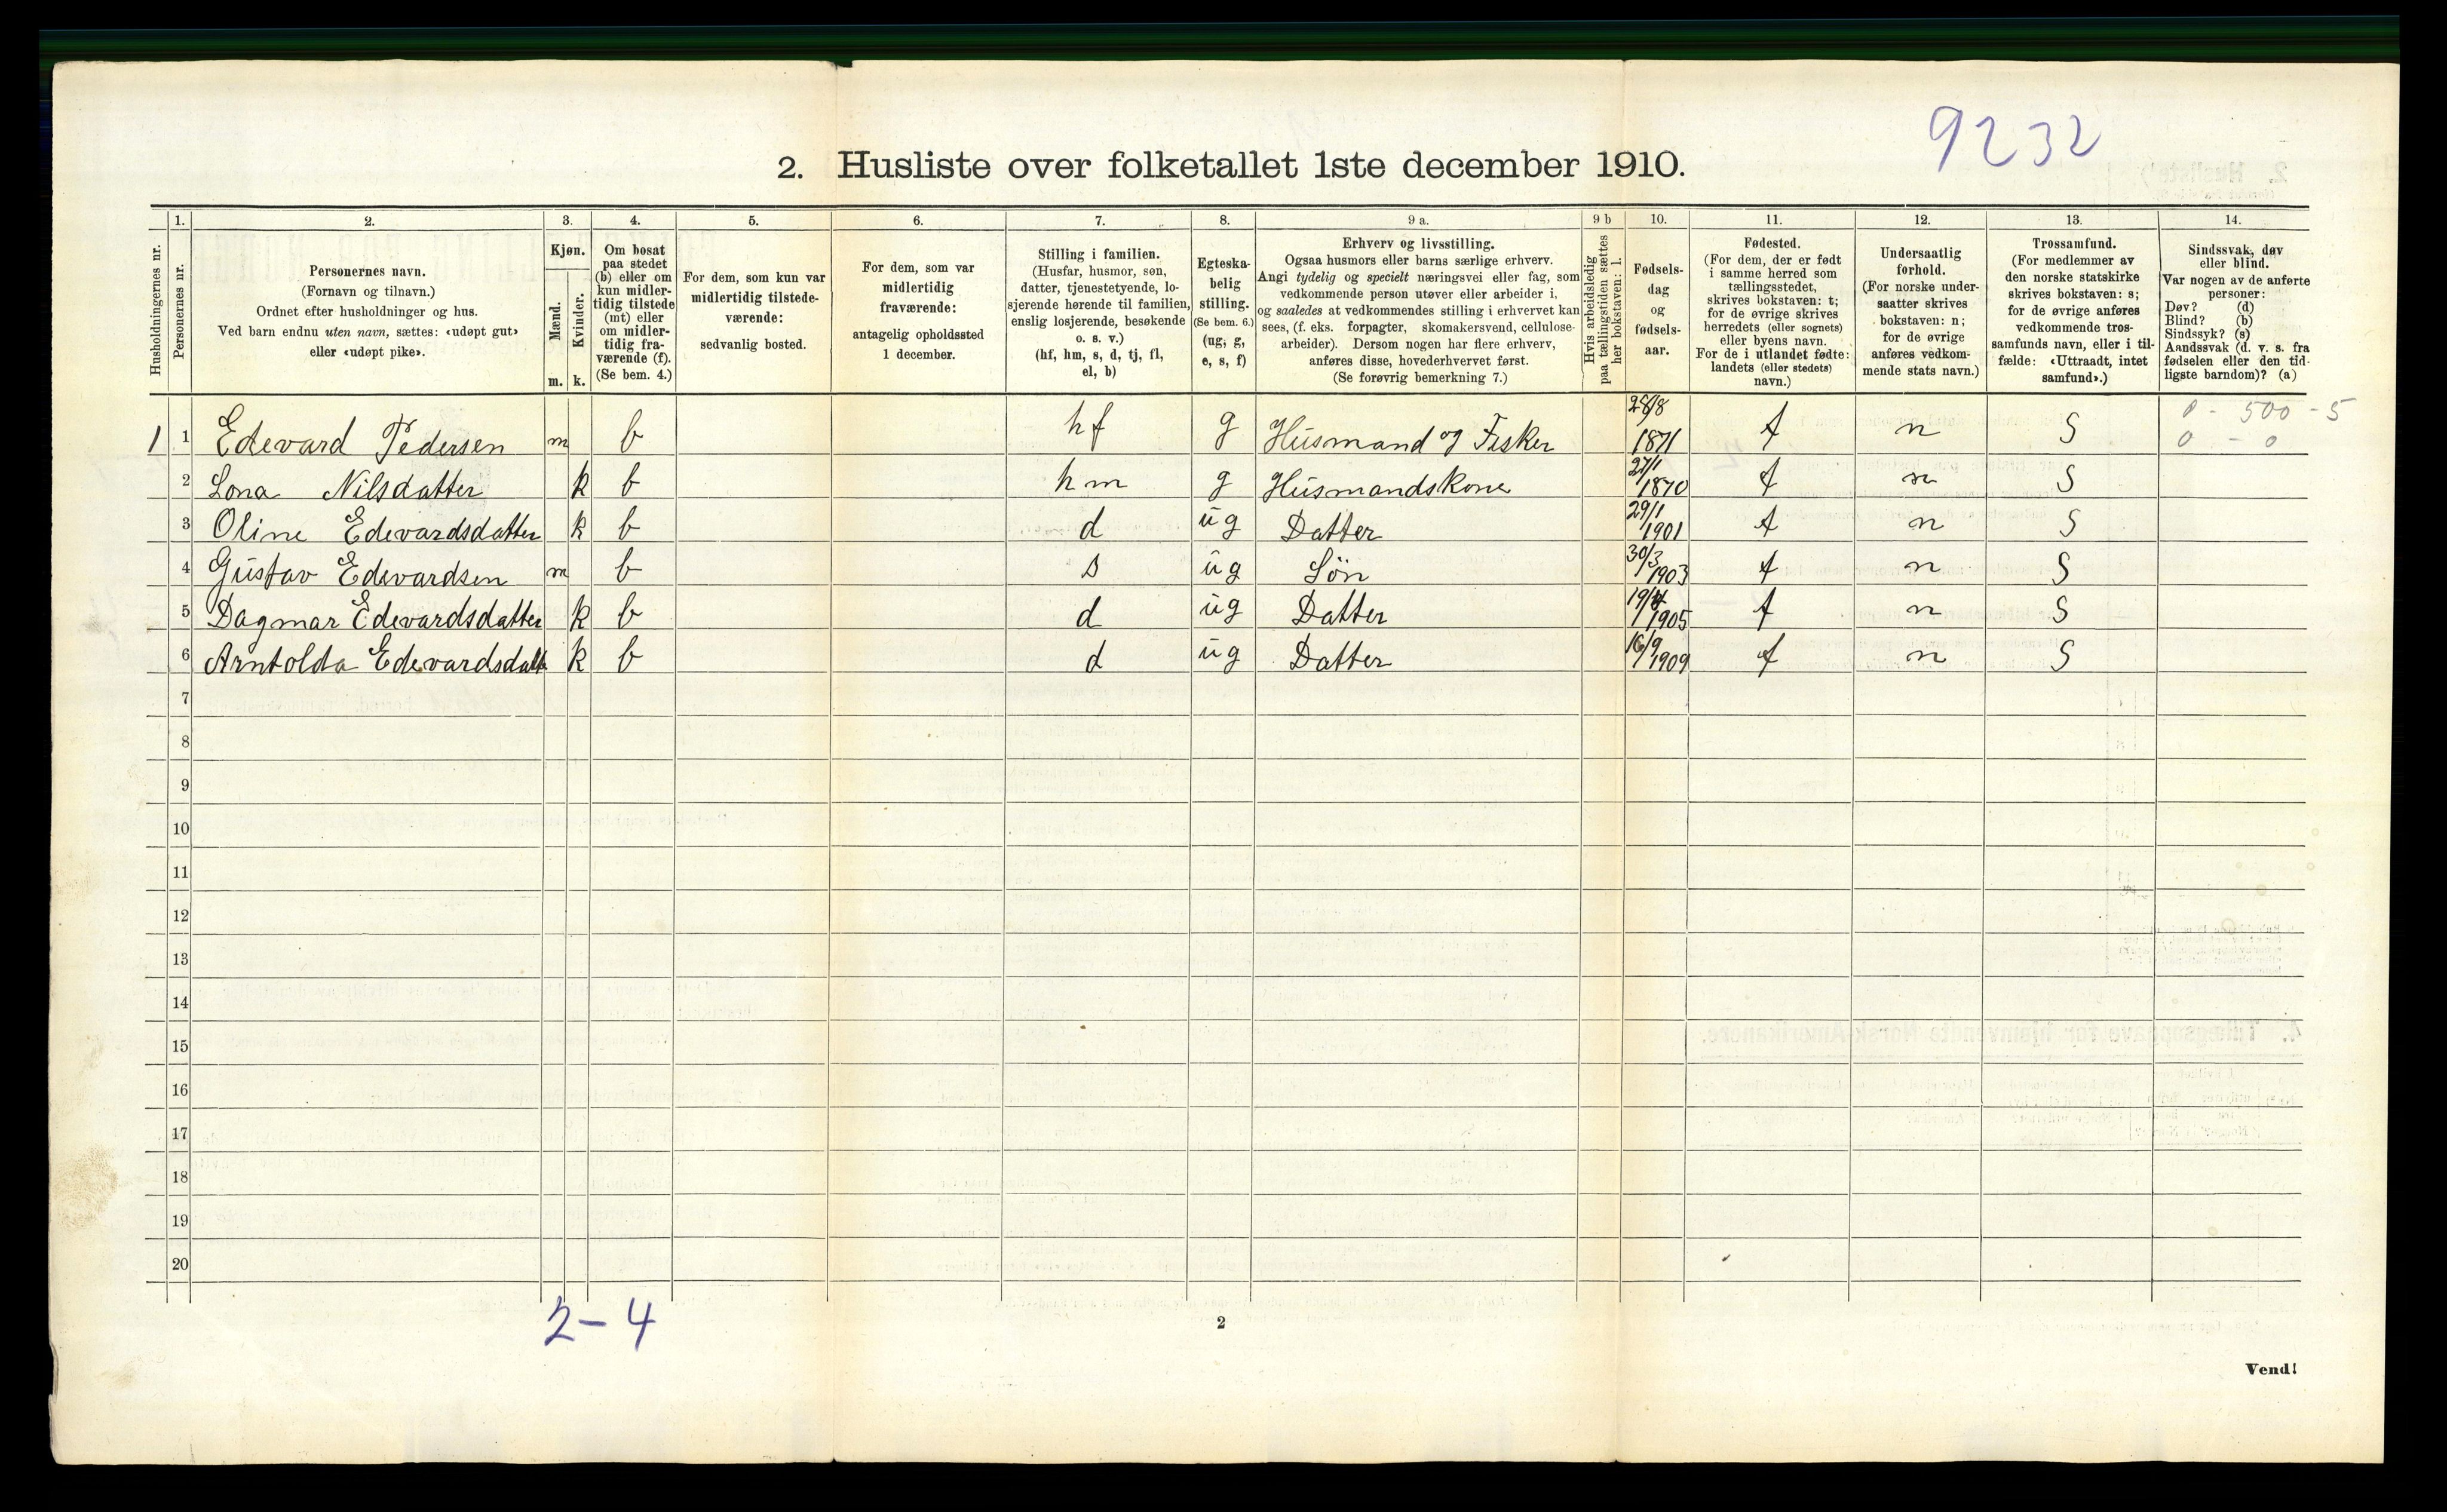 9232
2. Husliste over folketallet 1ste december 1910.
Husholdningernes nr.
1. Personernes nr.
2. Personernes navn.
(Fornavn og tilnavn.)
Ordnet efter husholdninger og hus.
Ved barn endnu uten navn, sættes: «udøpt gut»
eller «udøpt pike».
3. Kjøn.
Mænd. m.
Kvinder. k.
4. Om bosat
paa stedet
(b) eller om
kun midler-
tidig tilstede
(mt) eller
om midler-
tidig fra-
værende (f).
(Se bem. 4.)
5. For dem, som kun var
midlertidig tilstede-
værende:
sedvanlig bosted.
6. For dem, som var
midlertidig
fraværende:
antagelig opholdssted
1 december.
7. Stilling i familien.
(Husfar, husmor, søn,
datter, tjenestetyende, lo-
sjerende hørende til familien,
enslig losjerende, besøkende
o. s. v.)
(hf, hm, s, d, tj, fl,
el, b)
8. Egteska-
belig
stilling.
(Se bem. 6.)
(ug, g,
e, s, f)
9 a. Erhverv og livsstilling.
Ogsaa husmors eller barns særlige erhverv.
Angi tydelig og specielt næringsvei eller fag, som
vedkommende person utøver eller arbeider i,
og saaledes at vedkommendes stilling i erhvervet kan
sees, (f. eks. forpagter, skomakersvend, cellulose-
arbeider). Dersom nogen har flere erhverv,
anføres disse, hovederhvervet først.
(Se forøvrig bemerkning 7.)
9 b Hvis arbeidsledig
paa tællingstiden sættes
her bokstaven: l.
10. Fødsels-
dag
og
fødsels-
aar.
11. Fødested.
(For dem, der er født
i samme herred som
tællingsstedet,
skrives bokstaven: t;
for de øvrige skrives
herredets (eller sognets)
eller byens navn.
For de i utlandet fødte:
landets (eller stedets)
navn.)
12. Undersaatlig
forhold.
(For norske under-
saatter skrives
bokstaven: n;
for de øvrige
anføres vedkom-
mende stats navn.)
13. Trossamfund.
(For medlemmer av
den norske statskirke
skrives bokstaven: s;
for de øvrige anføres
vedkommende tros-
samfunds navn, eller i til-
fælde: «Uttraadt, intet
samfund».)
14. Sindssvak, døv
eller blind.
Var nogen av de anførte
personer:
Døv? (d)
Blind? (b)
Sindssyk? (s)
Aandssvak (d. v. s. fra
fødselen eller den tid-
ligste barndom)? (a)
1 1 Edevard Pedersen m b hf g Husmand og Fisker 28/8 1871 t n S 0 - 500 - 5
0 - 0
2 Lona Nilsdatter k b hm g Husmandskone 27/1 1870 t n S
3 Oline Edevardsdatter k b d ug Datter 29/1 1901 t n S
4 Gustav Edevardsen m b s ug Søn 30/3 1903 t n S
5 Dagmar Edevardsdatter k b d ug Datter 1905 t n S
6 Arntolda Edevardsdatt k b d ug Datter 16/9 1909 t n S
7
8
9
10
11
12
13
14
15
16
17
18
19
20
2-4
2
Vend!